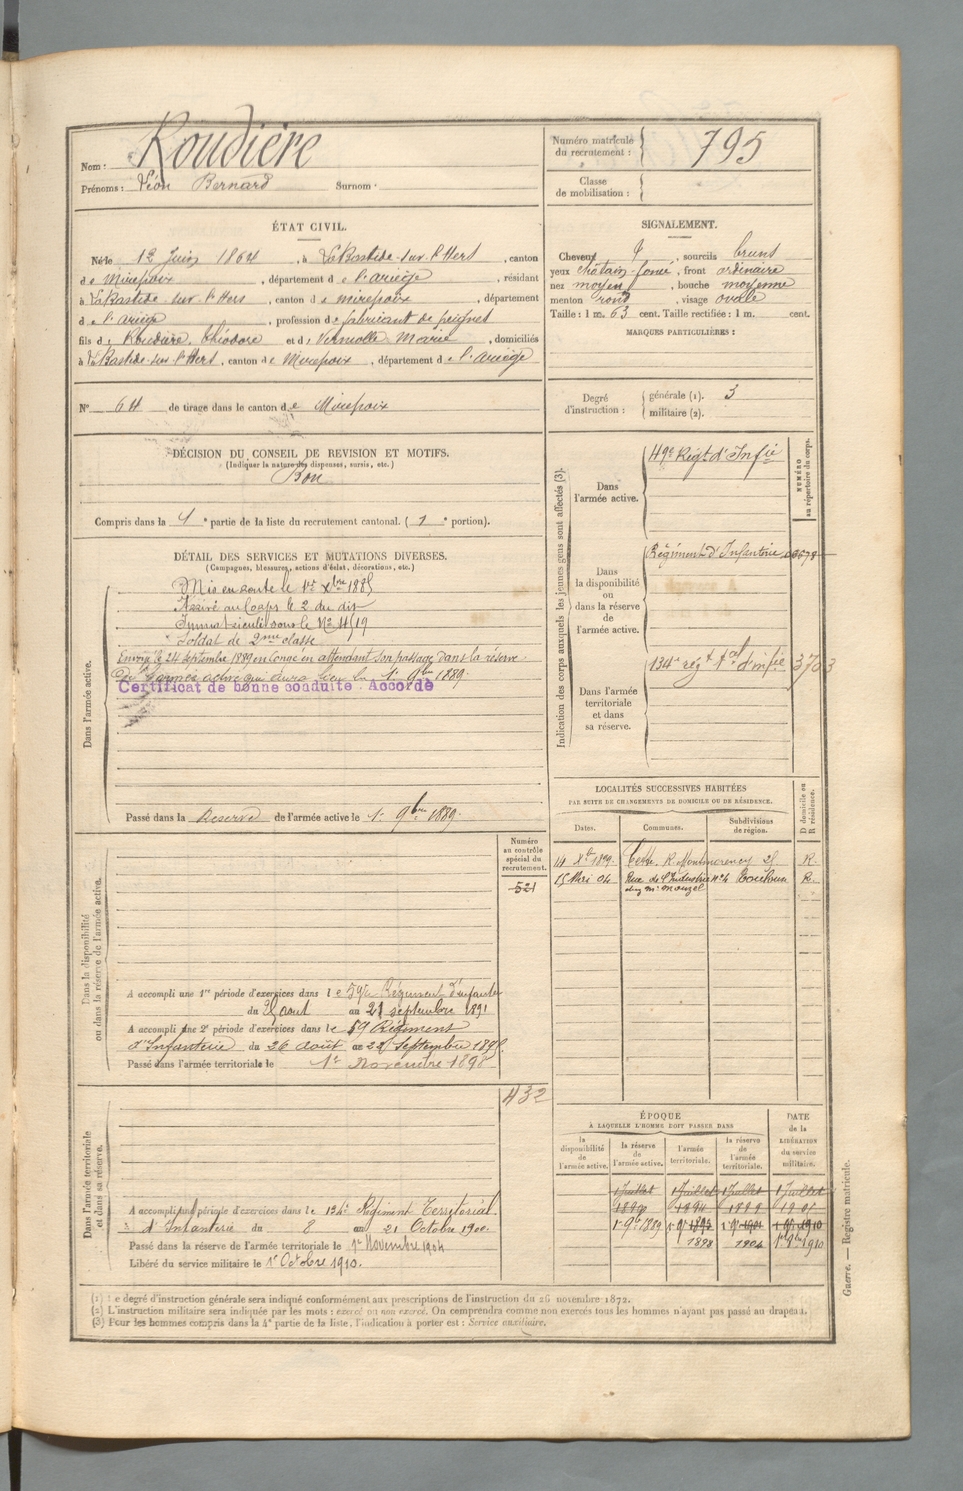 Nom : Roudière
Prénoms : Léon Bernard Surnom :
Numéro matricule du recrutement : 795
Classe de mobilisation :
ÉTAT CIVIL.
Né le 12 Juin 1864, à LaBastide-sur-l'Hers, canton
de Mirepoix, département de l'ariège, résidant
à LaBastide-sur-l'Hers, canton de Mirepoix, département
de l'ariège, profession de fabricant de peignes
fils de Roudière, Théodore et de Vernolle Marie, domiciliés
à LaBastide-sur-l'Hers, canton de Mirepoix, département de l'ariège
N° 64 de tirage dans le canton de Mirepoix
SIGNALEMENT.
Cheveux, sourcils bruns
yeux châtain-foncé, front ordinaire
nez moyen, bouche moyenne
menton rond, visage ovale
Taille : 1 m. 63 cent. Taille rectifiée : 1 m. cent.
MARQUES PARTICULIÈRES :
Degré d'instruction : générale (1). 3
militaire (2).
DÉCISION DU CONSEIL DE REVISION ET MOTIFS.
(Indiquer la nature des dispenses, sursis, etc.)
Bon
Compris dans la 1e partie de la liste du recrutement cantonal. (1e portion).
DÉTAIL DES SERVICES ET MUTATIONS DIVERSES.
(Campagnes, blessures, actions d'éclat, décorations, etc.)
Dans l'armée active.
Mis en route le 1er Xbre 1885
Arrivé au Corps le 2 du dit
Immatriculé sous le N° 4519
Soldat de 2me classe
Envoyé le 24 septembre 1889 en congé en attendant son passage dans la réserve
de l'armée active qui aura lieu le 1er 9bre 1889.
Certificat de bonne conduite Accordé
Passé dans la Réserve de l'armée active le 1er 9bre 1889.
Indication des corps auxquels les jeunes gens sont affectés (3).
NUMÉRO au répertoire du corps.
Dans l'armée active.
49e Régt d'Infie
Dans la disponibilité ou dans la réserve de l'armée active.
Régiment d'Infanterie
Dans l'armée territoriale et dans sa réserve.
134e régt tal d'infie 3703
LOCALITÉS SUCCESSIVES HABITÉES
PAR SUITE DE CHANGEMENTS DE DOMICILE OU DE RÉSIDENCE.
Dates. Communes. Subdivisions de région. D domicile ou R résidence.
14 Xbre 1899 Cette, R. Montmorency 25 R.
15 Mai 04 Rue de l'Industrie n° 4 R.
chez Mr
Dans la disponibilité ou dans la réserve de l'armée active.
Numéro au contrôle spécial du recrutement.
521
A accompli une 1re période d'exercices dans le 59e Régiment d'infanterie
du août au 21 septembre 1891
A accompli une 2e période d'exercices dans le 59 Régiment
d'Infanterie du 26 août au 22 Septembre 1895.
Passé dans l'armée territoriale le 1er Novembre 1898
Dans l'armée territoriale et dans sa réserve.
432
A accompli une période d'exercices dans le 134e Régiment Territorial
d'Infanterie du 8 au 21 Octobre 1900.
Passé dans la réserve de l'armée territoriale le 1er Novembre 1904
Libéré du service militaire le 1er Octobre 1910.
ÉPOQUE
À LAQUELLE L'HOMME DOIT PASSER DANS
la disponibilité de l'armée active. la réserve de l'armée active. l'armée territoriale. la réserve de l'armée territoriale. DATE de la LIBÉRATION du service militaire.
1 Juillet 1 Juillet 1 Juillet 1 Juillet
1890 1894 1899 1905
1er 9bre 1889
1898 1904 1910
Guerre. — Registre matricule.
(1) Le degré d'instruction générale sera indiqué conformément aux prescriptions de l'instruction du 26 novembre 1872.
(2) L'instruction militaire sera indiquée par les mots : exercé ou non exercé. On comprendra comme non exercés tous les hommes n'ayant pas passé au drapeau.
(3) Pour les hommes compris dans la 4e partie de la liste, l'indication à porter est : Service auxiliaire.